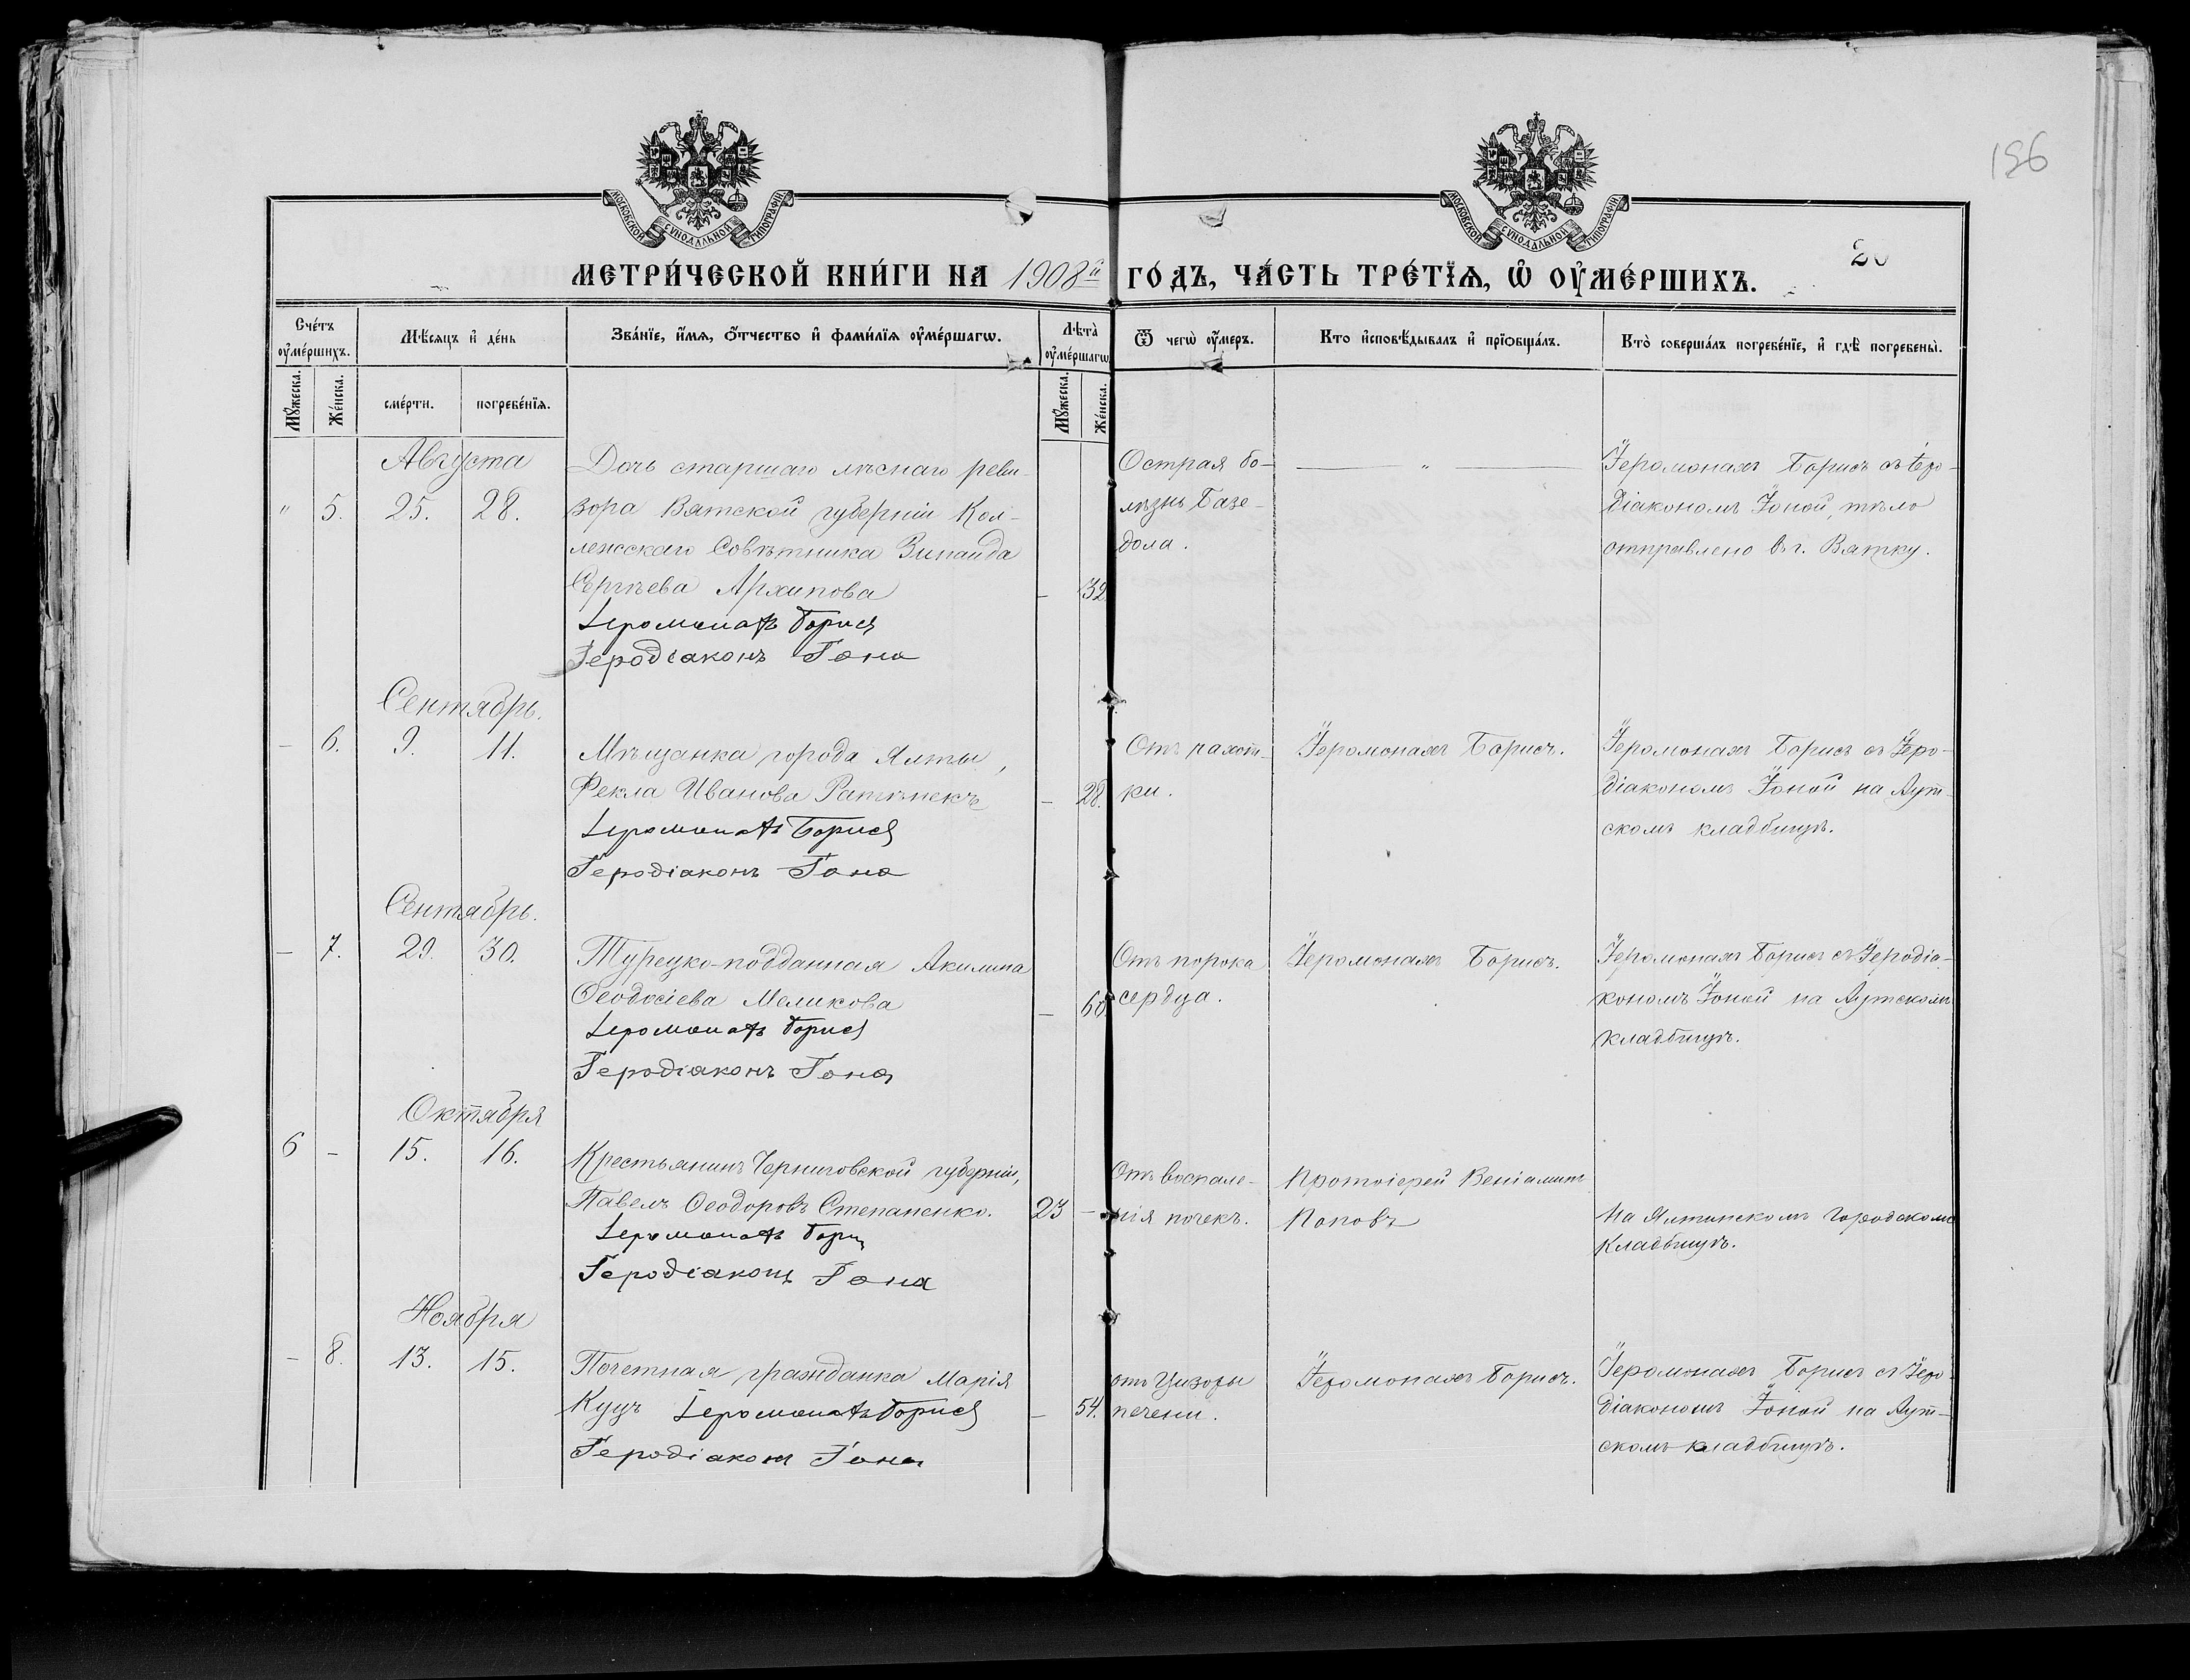 196
МОСКОВСКОЙ СѴНОДАЛЬНОЙ ТИПОГРАФІИ
МОСКОВСКОЙ СѴНОДАЛЬНОЙ ТИПОГРАФІИ
МЕТРИ́ЧЕСКОЙ КНИ́ГИ НА 1908й ГО́ДЪ, ЧА́СТЬ ТРЕ́ТЇѦ, Ѡ҆ ОУ҆МЕ́РШИХЪ.
20
Сче́тъ оу҆ме́ршихъ.
Мѣ́сяцъ и҆ де́нь
Зва́нїе, и҆́мѧ, ѻ҆́тчество и҆ фами́лїѧ оу҆ме́ршагѡ.
Лѣта̀ оу҆ме́ршагѡ
Ѿ чегѡ̀ оу҆́меръ.
Кто̀ и҆сповѣ́дывалъ и҆ прїѻбща́лъ.
Кто̀ соверша́лъ погребе́нїе, и҆ гдѣ̀ погребены̀.
Мꙋ́жеска.
Же́нска.
сме́рти.
погребе́нїѧ.
Мꙋ́жеска.
Же́нска.
Августа
" 5. 25. 28.
Дочь старшаго лѣснаго реви-
зора Вятской губерніи Кол-
лежскаго Совѣтника Зинаида
Сергѣева Архипова
- 32
Іеромонахъ Борисъ
Іеродіаконъ Іона
Острая бо-
лѣзнь Базе-
дола.
"
Іеромонахъ Борисъ съ Іеро-
діакономъ Іоной, тѣло
отправлено въ г. Вятку.
Сентябрь.
- 6. 9. 11.
Мѣщанка города Ялты,
Фекла Иванова
- 28.
Іеромонахъ Борисъ
Іеродіаконъ Іона
Отъ чахот-
ки.
Іеромонахъ Борисъ.
Іеромонахъ Борисъ съ Іеро-
діакономъ Іоной на Аут-
скомъ кладбищѣ.
Сентябрь.
- 7. 29. 30.
Турецко-подданная Акилина
Ѳеодосіева Меликова
- 60.
Іеромонахъ Борисъ
Іеродіаконъ Іона
Отъ порока
сердца.
Іеромонахъ Борисъ.
Іеромонахъ Борисъ съ Іеродіа-
кономъ Іоной на Аутскомъ
кладбищѣ.
Октября
6 - 15. 16.
Крестьянинъ Черниговской губерніи,
Павелъ Ѳеодоровъ Степаненко.
23 -
Іеромонахъ Борисъ
Іеродіаконъ Іона
Отъ воспале-
нія почекъ.
Протоіерей Веніаминъ
Поповъ
На Ялтинскомъ Городскомъ
Кладбищѣ.
Ноября
- 8. 13. 15.
Почетная гражданка Марія
Куцъ Іеромонахъ Борисъ
- 54.
Іеродіаконъ Іона
отъ Цирозы
печени.
Іеромонахъ Борисъ.
Іеромонахъ Борисъ съ Іеро-
діакономъ Іоной на Аут-
скомъ кладбищѣ.